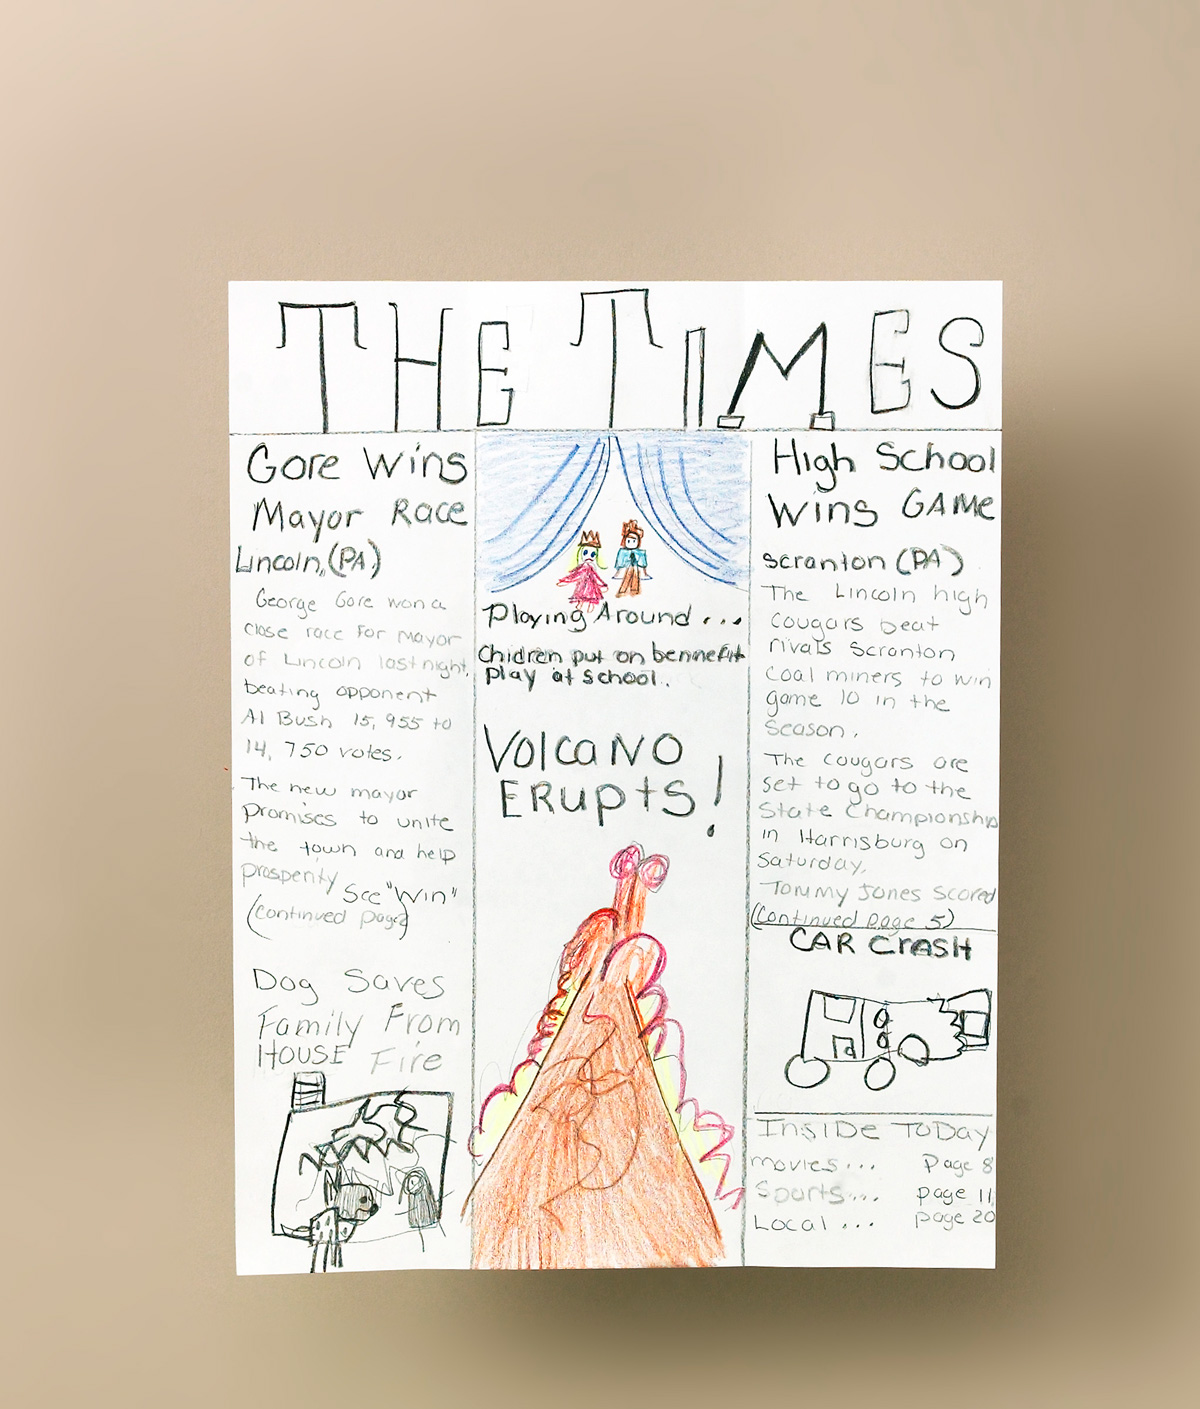 THE TIMES
Gore Wins
Mayor Race
Lincoln, (PA)
George Gore won a
close race for mayor
of Lincoln last night,
beating opponent
Al Bush 15,955 to
14,750 votes.
The new mayor
promises to unite
the town and help
prosperity See "Win"
(continued page2)
Dog Saves
Family From
HOUSE Fire
Playing Around...
Chidren put on bennefit
play at school.
Volcano
Erupts!
High School
Wins GAME
Scranton (PA)
The Lincoln high
cougars beat
rivals Scranton
coal miners to win
game 10 in the
season.
The cougars are
set to go to the
State Championship
in Harrisburg on
Saturday.
Tommy Jones scored
(continued page 5)
CAR CrasH
InsiDe ToDay
movies... Page 8
Sports... page 11
Local... page 20